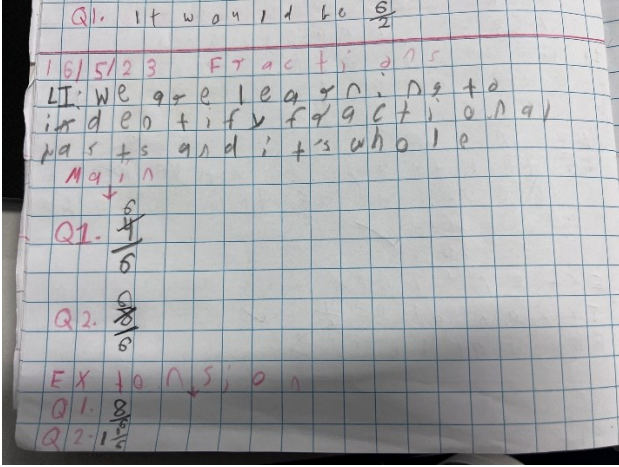 Q1. It would be 6/2
16/5/23 Fractions
LI: We are learning to
indentify fractional
parts and it's whole
Main
Q1. 6/6
Q2. 6/6
Extension
Q1. 8/6
Q2. 1